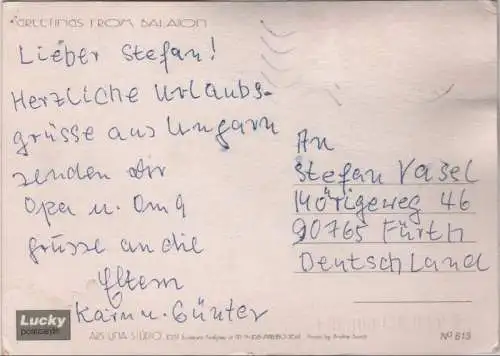 GREETINGS FROM BALATON
Lieber Stefan!
Herzliche Urlaubs-
grüsse aus Ungarn
senden dir
Opa u. Oma
grüsse an die
Eltern
Karin u. Günter
An
Stefan Vasel
90765 Fürth
Deutschland
Lucky
postcards
ARS UNA STÚDIÓ
Nº 613